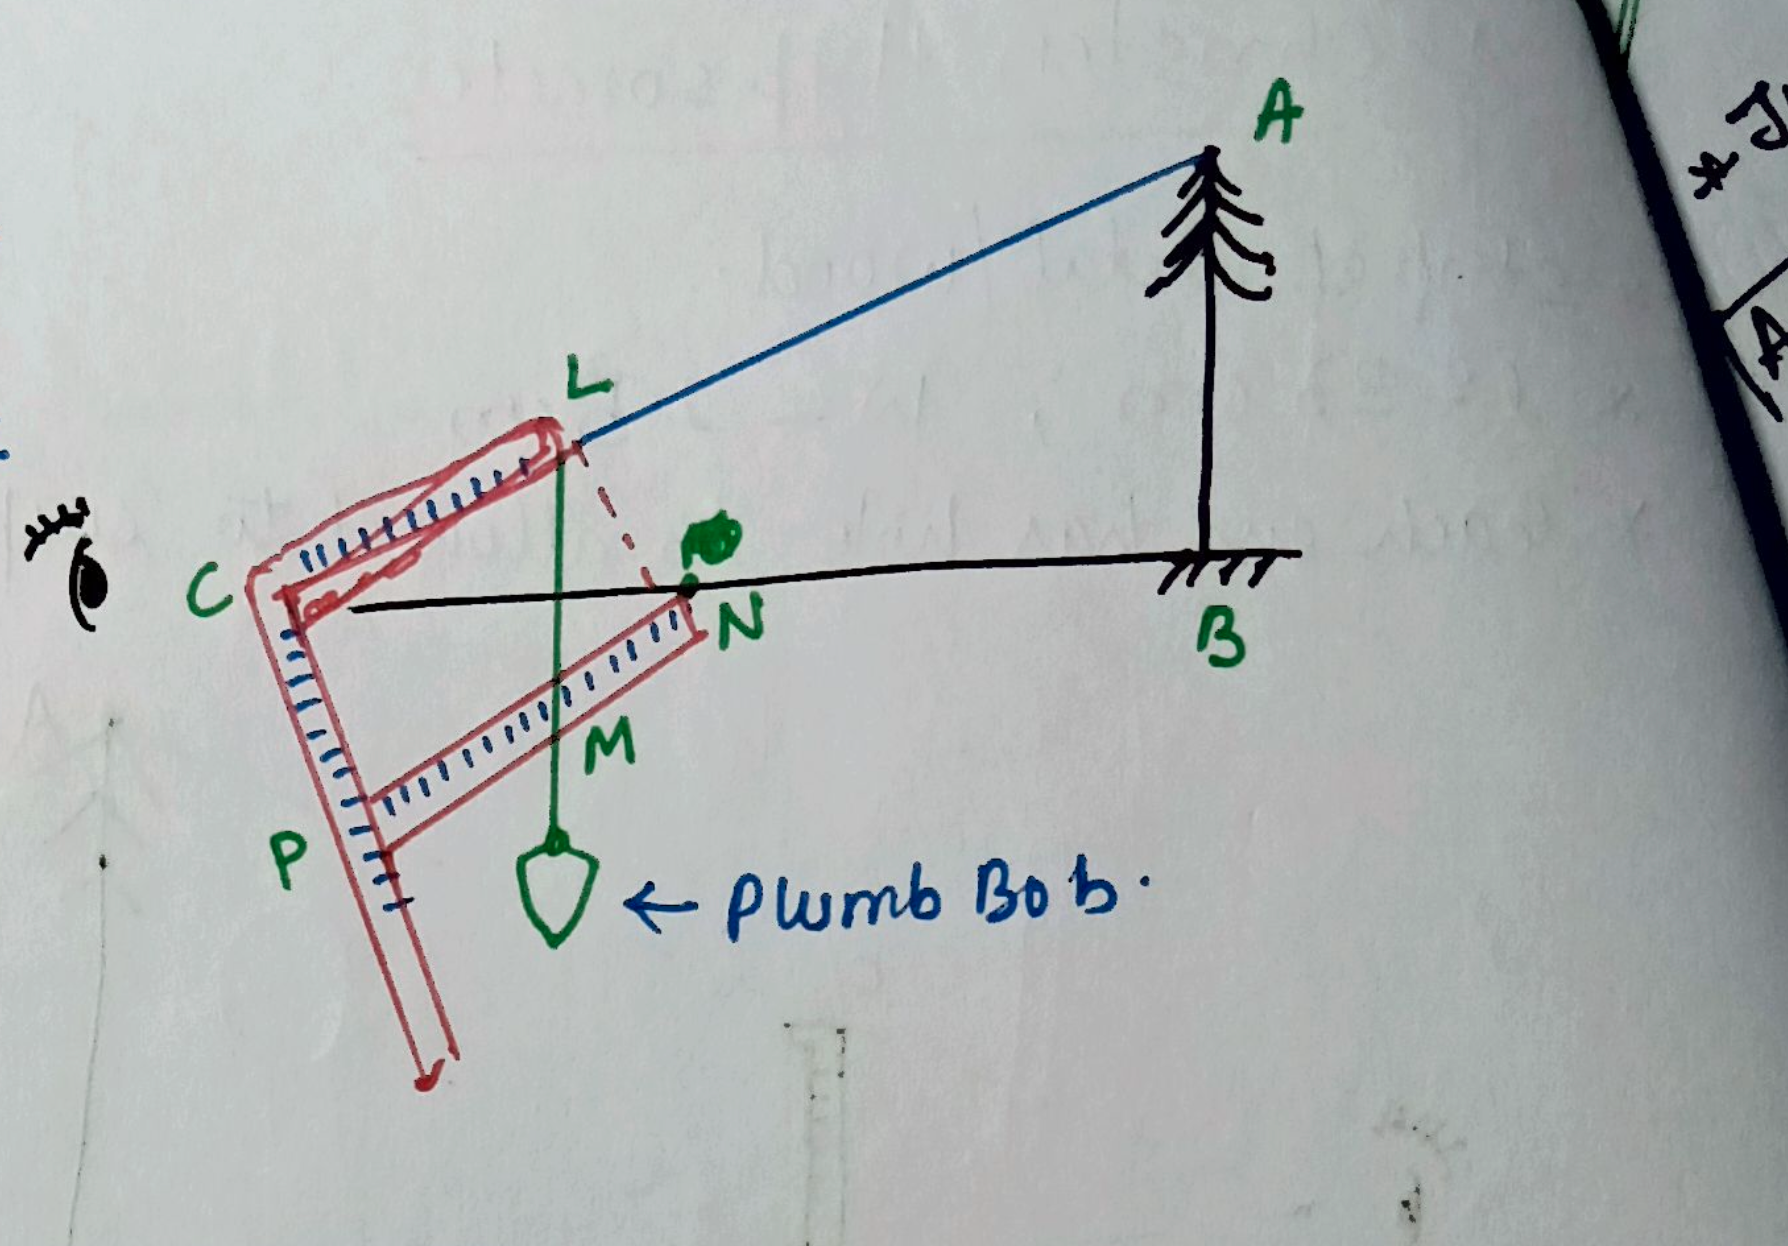 A
L
C
N
B
M
P
← Plumb Bob.